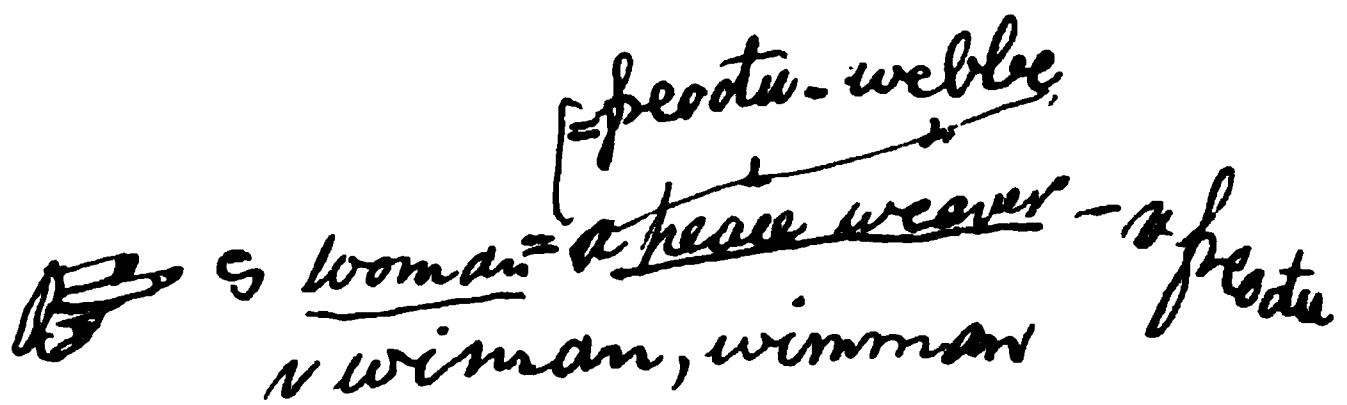 = freodu-webbe
☞ S woman = a peace weaver - v freodu
v wiman, wimman